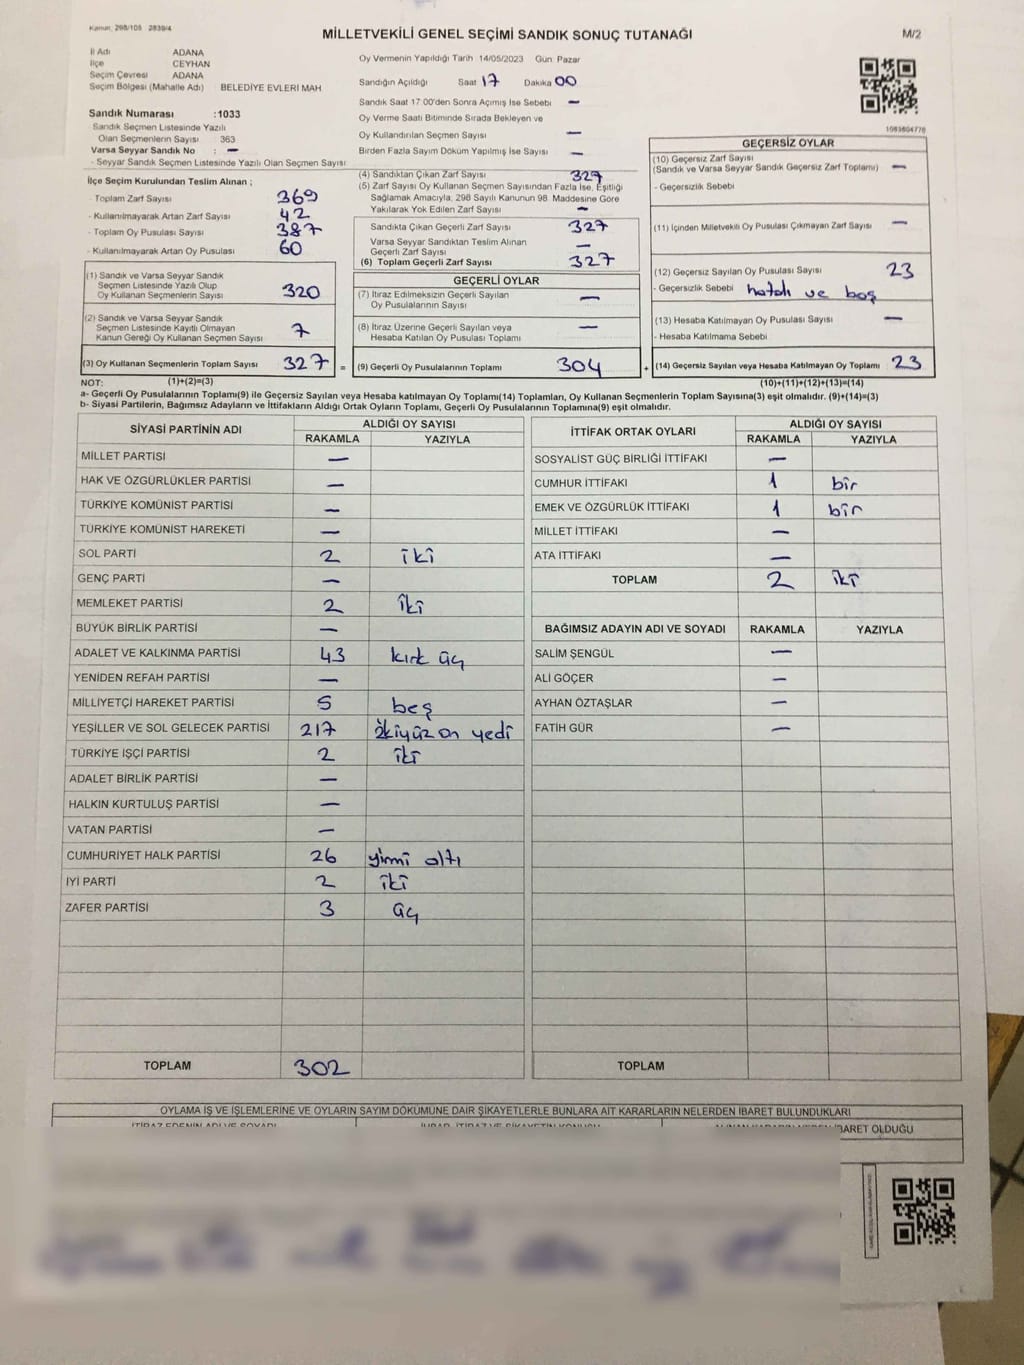 Kanun, 298/105 2839/4
MİLLETVEKİLİ GENEL SEÇİMİ SANDIK SONUÇ TUTANAĞI
M/2
İl Adı ADANA
İlçe CEYHAN
Seçim Çevresi ADANA
Seçim Bölgesi (Mahalle Adı) BELEDİYE EVLERİ MAH
Sandık Numarası :1033
Sandık Seçmen Listesinde Yazılı
Olan Seçmenlerin Sayısı 363
Varsa Seyyar Sandık No : -
- Seyyar Sandık Seçmen Listesinde Yazılı Olan Seçmen Sayısı
Oy Vermenin Yapıldığı Tarih 14/05/2023 Gün Pazar
Sandığın Açıldığı Saat 17 Dakika 00
Sandık Saat 17.00'den Sonra Açımış İse Sebebi -
Oy Verme Saati Bitiminde Sırada Bekleyen ve
Oy Kullandırılan Seçmen Sayısı -
Birden Fazla Sayım Döküm Yapılmış İse Sayısı -
1083604776
İlçe Seçim Kurulundan Teslim Alınan ;
- Toplam Zarf Sayısı 369
- Kullanılmayarak Artan Zarf Sayısı 42
- Toplam Oy Pusulası Sayısı 387
- Kullanılmayarak Artan Oy Pusulası 60
(1) Sandık ve Varsa Seyyar Sandık
Seçmen Listesinde Yazılı Olup
Oy Kullanan Seçmenlerin Sayısı 320
(2) Sandık ve Varsa Seyyar Sandık
Seçmen Listesinde Kayıtlı Olmayan
Kanun Gereği Oy Kullanan Seçmen Sayısı 7
(3) Oy Kullanan Seçmenlerin Toplam Sayısı 327 =
(4) Sandıktan Çıkan Zarf Sayısı 327
(5) Zarf Sayısı Oy Kullanan Seçmen Sayısından Fazla İse, Eşitliği
Sağlamak Amacıyla, 298 Sayılı Kanunun 98. Maddesine Göre
Yakılarak Yok Edilen Zarf Sayısı -
Sandıkta Çıkan Geçerli Zarf Sayısı 327
Varsa Seyyar Sandıktan Teslim Alınan
Geçerli Zarf Sayısı -
(6) Toplam Geçerli Zarf Sayısı 327
GEÇERLİ OYLAR
(7) İtiraz Edilmeksizin Geçerli Sayılan
Oy Pusulalarının Sayısı -
(8) İtiraz Üzerine Geçerli Sayılan veya
Hesaba Katılan Oy Pusulası Toplamı -
(9) Geçerli Oy Pusulalarının Toplamı 304 +
GEÇERSİZ OYLAR
(10) Geçersiz Zarf Sayısı
(Sandık ve Varsa Seyyar Sandık Geçersiz Zarf Toplamı) -
- Geçersizlik Sebebi
(11) İçinden Milletvekili Oy Pusulası Çıkmayan Zarf Sayısı -
(12) Geçersiz Sayılan Oy Pusulası Sayısı 23
- Geçersizlik Sebebi hatalı ve boş
(13) Hesaba Katılmayan Oy Pusulası Sayısı -
- Hesaba Katılmama Sebebi
(14) Geçersiz Sayılan veya Hesaba Katılmayan Oy Toplamı 23
NOT: (1)+(2)=(3) (10)+(11)+(12)+(13)=(14)
a- Geçerli Oy Pusulalarının Toplamı(9) ile Geçersiz Sayılan veya Hesaba katılmayan Oy Toplamı(14) Toplamları, Oy Kullanan Seçmenlerin Toplam Sayısına(3) eşit olmalıdır. (9)+(14)=(3)
b- Siyasi Partilerin, Bağımsız Adayların ve İttifakların Aldığı Ortak Oyların Toplamı, Geçerli Oy Pusulalarının Toplamına(9) eşit olmalıdır.
SİYASİ PARTİNİN ADI ALDIĞI OY SAYISI
RAKAMLA YAZIYLA
MİLLET PARTİSİ -
HAK VE ÖZGÜRLÜKLER PARTİSİ -
TÜRKİYE KOMÜNİST PARTİSİ -
TÜRKİYE KOMÜNİST HAREKETİ -
SOL PARTİ 2 iki
GENÇ PARTİ -
MEMLEKET PARTİSİ 2 iki
BÜYÜK BİRLİK PARTİSİ -
ADALET VE KALKINMA PARTİSİ 43 kırk üç
YENİDEN REFAH PARTİSİ -
MİLLİYETÇİ HAREKET PARTİSİ 5 beş
YEŞİLLER VE SOL GELECEK PARTİSİ 217 ikiyüz on yedi
TÜRKİYE İŞÇİ PARTİSİ 2 iki
ADALET BİRLİK PARTİSİ -
HALKIN KURTULUŞ PARTİSİ -
VATAN PARTİSİ -
CUMHURİYET HALK PARTİSİ 26 yirmi altı
İYİ PARTİ 2 iki
ZAFER PARTİSİ 3 üç
TOPLAM 302
İTTİFAK ORTAK OYLARI ALDIĞI OY SAYISI
RAKAMLA YAZIYLA
SOSYALİST GÜÇ BİRLİĞİ İTTİFAKI -
CUMHUR İTTİFAKI 1 bir
EMEK VE ÖZGÜRLÜK İTTİFAKI 1 bir
MİLLET İTTİFAKI -
ATA İTTİFAKI -
TOPLAM 2 iki
BAĞIMSIZ ADAYIN ADI VE SOYADI RAKAMLA YAZIYLA
SALİM ŞENGÜL -
ALİ GÖÇER -
AYHAN ÖZTAŞLAR -
FATİH GÜR -
TOPLAM
OYLAMA İŞ VE İŞLEMLERİNE VE OYLARIN SAYIM DÖKÜMÜNE DAİR ŞİKAYETLERLE BUNLARA AİT KARARLARIN NELERDEN İBARET BULUNDUKLARI
İBARET OLDUĞU